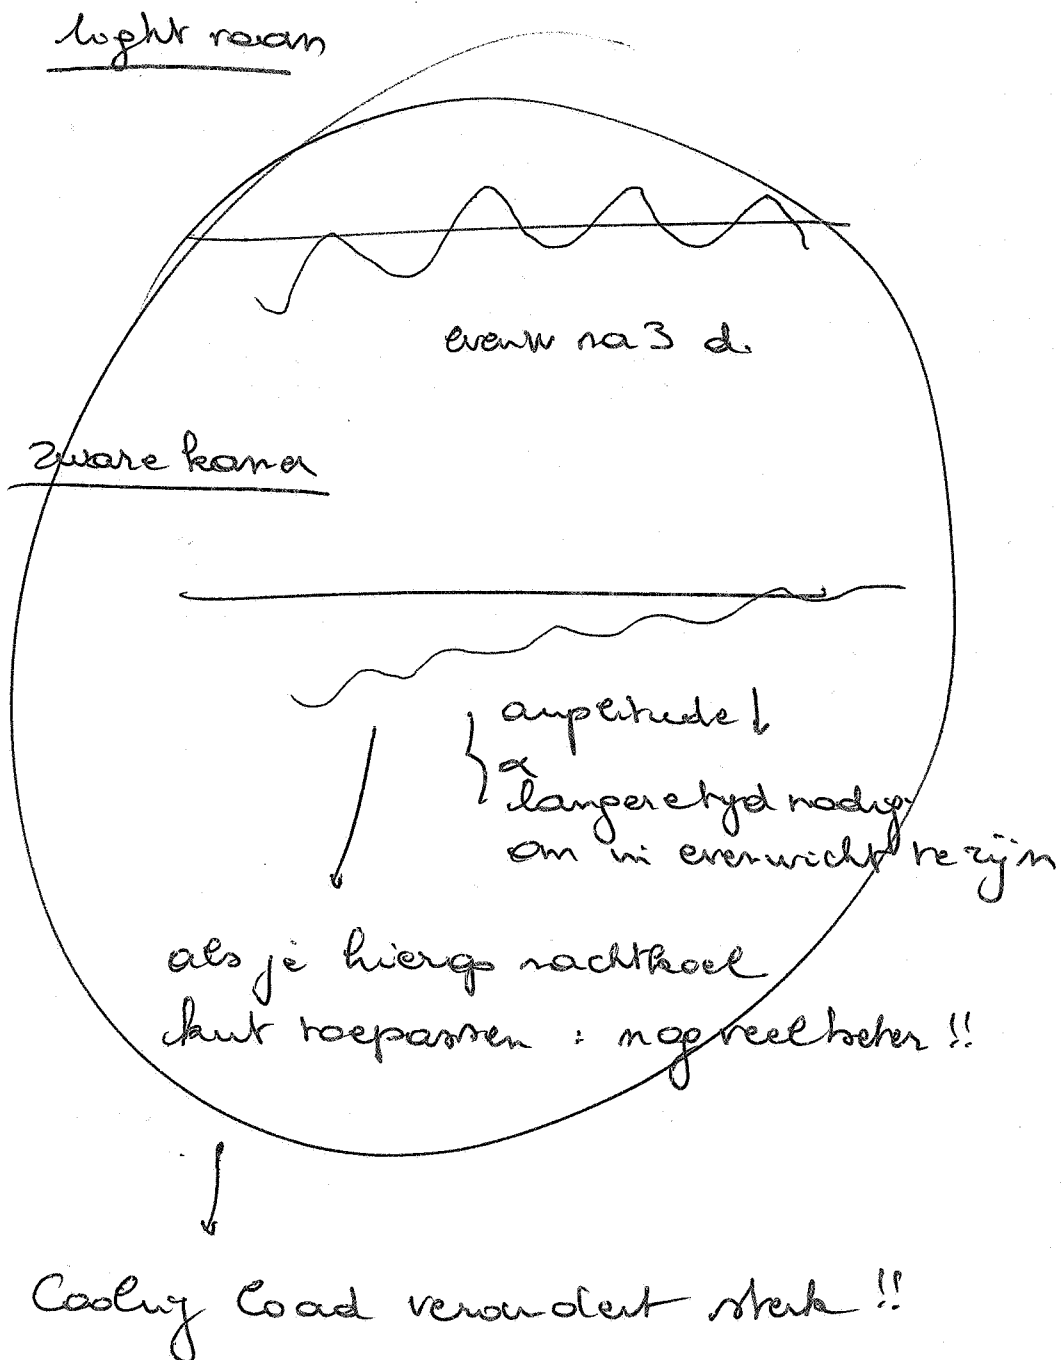 light room
evenw na 3 d.
zware kamer
amplitude ↓
&
langere tijd nodig
om in evenwicht te zijn
als je hierop nachtkoel
kut toepassen : nog veel beter !!
Cooling load verandert sterk !!